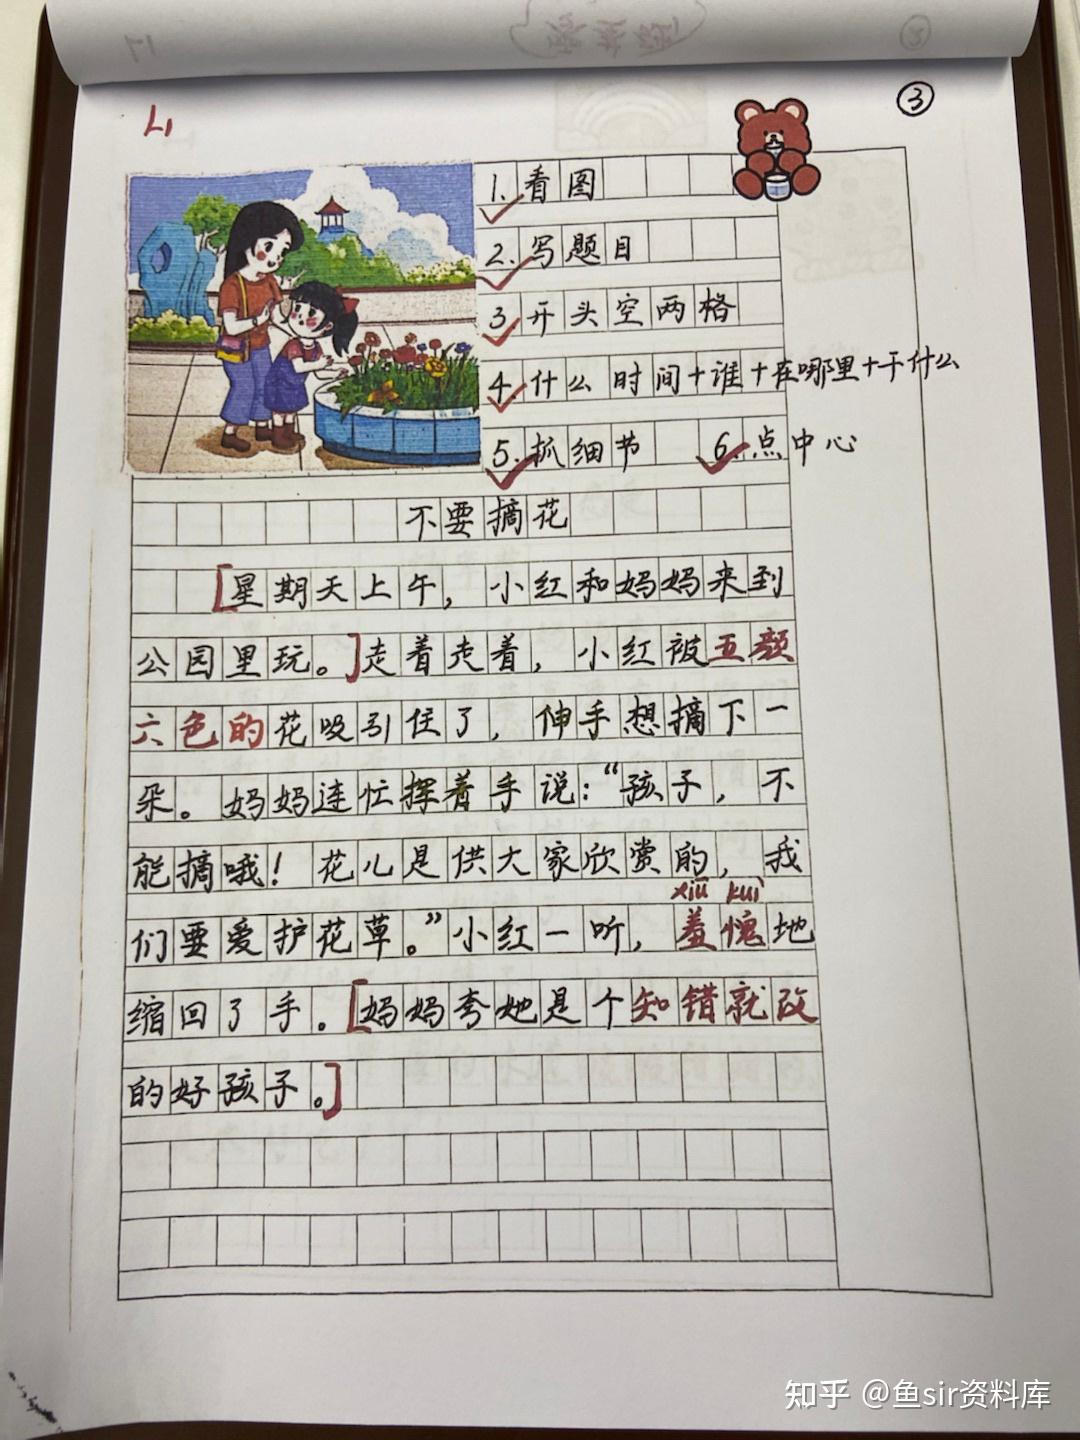 ③
L1
1.看图
2.写题目
3.开头空两格
4.什么时间+谁+在哪里+干什么
5.抓细节 6.点中心
不要摘花
[星期天上午，小红和妈妈来到
公园里玩。]走着走着，小红被五颜
六色的花吸引住了，伸手想摘下一
朵。妈妈连忙挥着手说：“孩子，不
能摘哦！花儿是供大家欣赏的，我
xiū kuì
们要爱护花草。”小红一听，羞愧地
缩回了手。[妈妈夸她是个知错就改
的好孩子。]
知乎 @鱼sir资料库